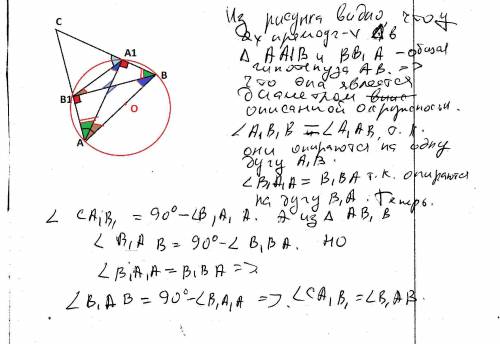 C
A1
B
B1
O
A
Из рисунка видно, что у
2х прямоуг-х
Δ AA1B и BB1A – общая
гипотенуза AB. =>
Что она является
диаметром
описанной окружности.
∠A1B1B = ∠A1AB, т.к.
они опираются на одну
дугу A1B.
∠B1A1A = B1BA т.к. опираются
на дугу B1A. Теперь.
∠CA1B1 = 90° – ∠B1A1A. А из Δ AB1B
∠B1AB = 90° – ∠B1BA. НО
∠B1A1A = B1BA =>
∠B1AB = 90° – ∠B1A1A => ∠CA1B1 = ∠B1AB.